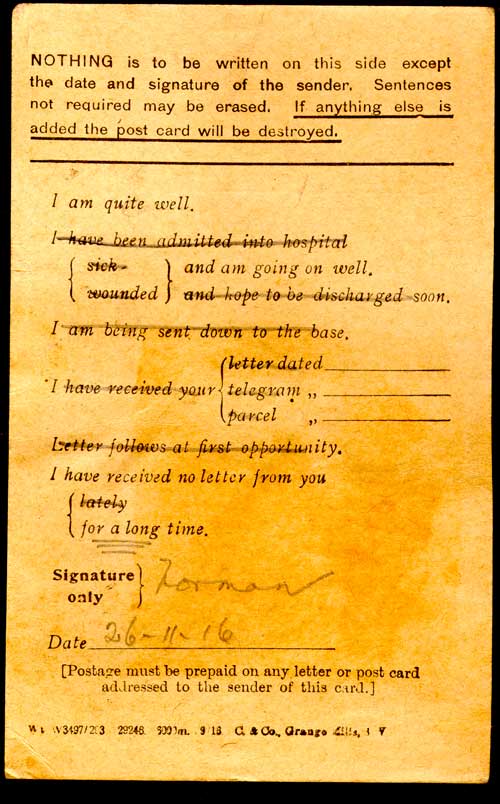 NOTHING is to be written on this side except
the date and signature of the sender. Sentences
not required may be erased. If anything else is
added the post card will be destroyed.
I am quite well.
I have been admitted into hospital
{ sick } and am going on well.
{ wounded } and hope to be discharged soon.
I am being sent down to the base.
I have received your { letter dated
telegram „
parcel „
Letter follows at first opportunity.
I have received no letter from you
{ lately
{ for a long time.
Signature
only } Norman
Date 26-11-16
[Postage must be prepaid on any letter or post card
addressed to the sender of this card.]
29246. 9/16 C. & Co., Grange